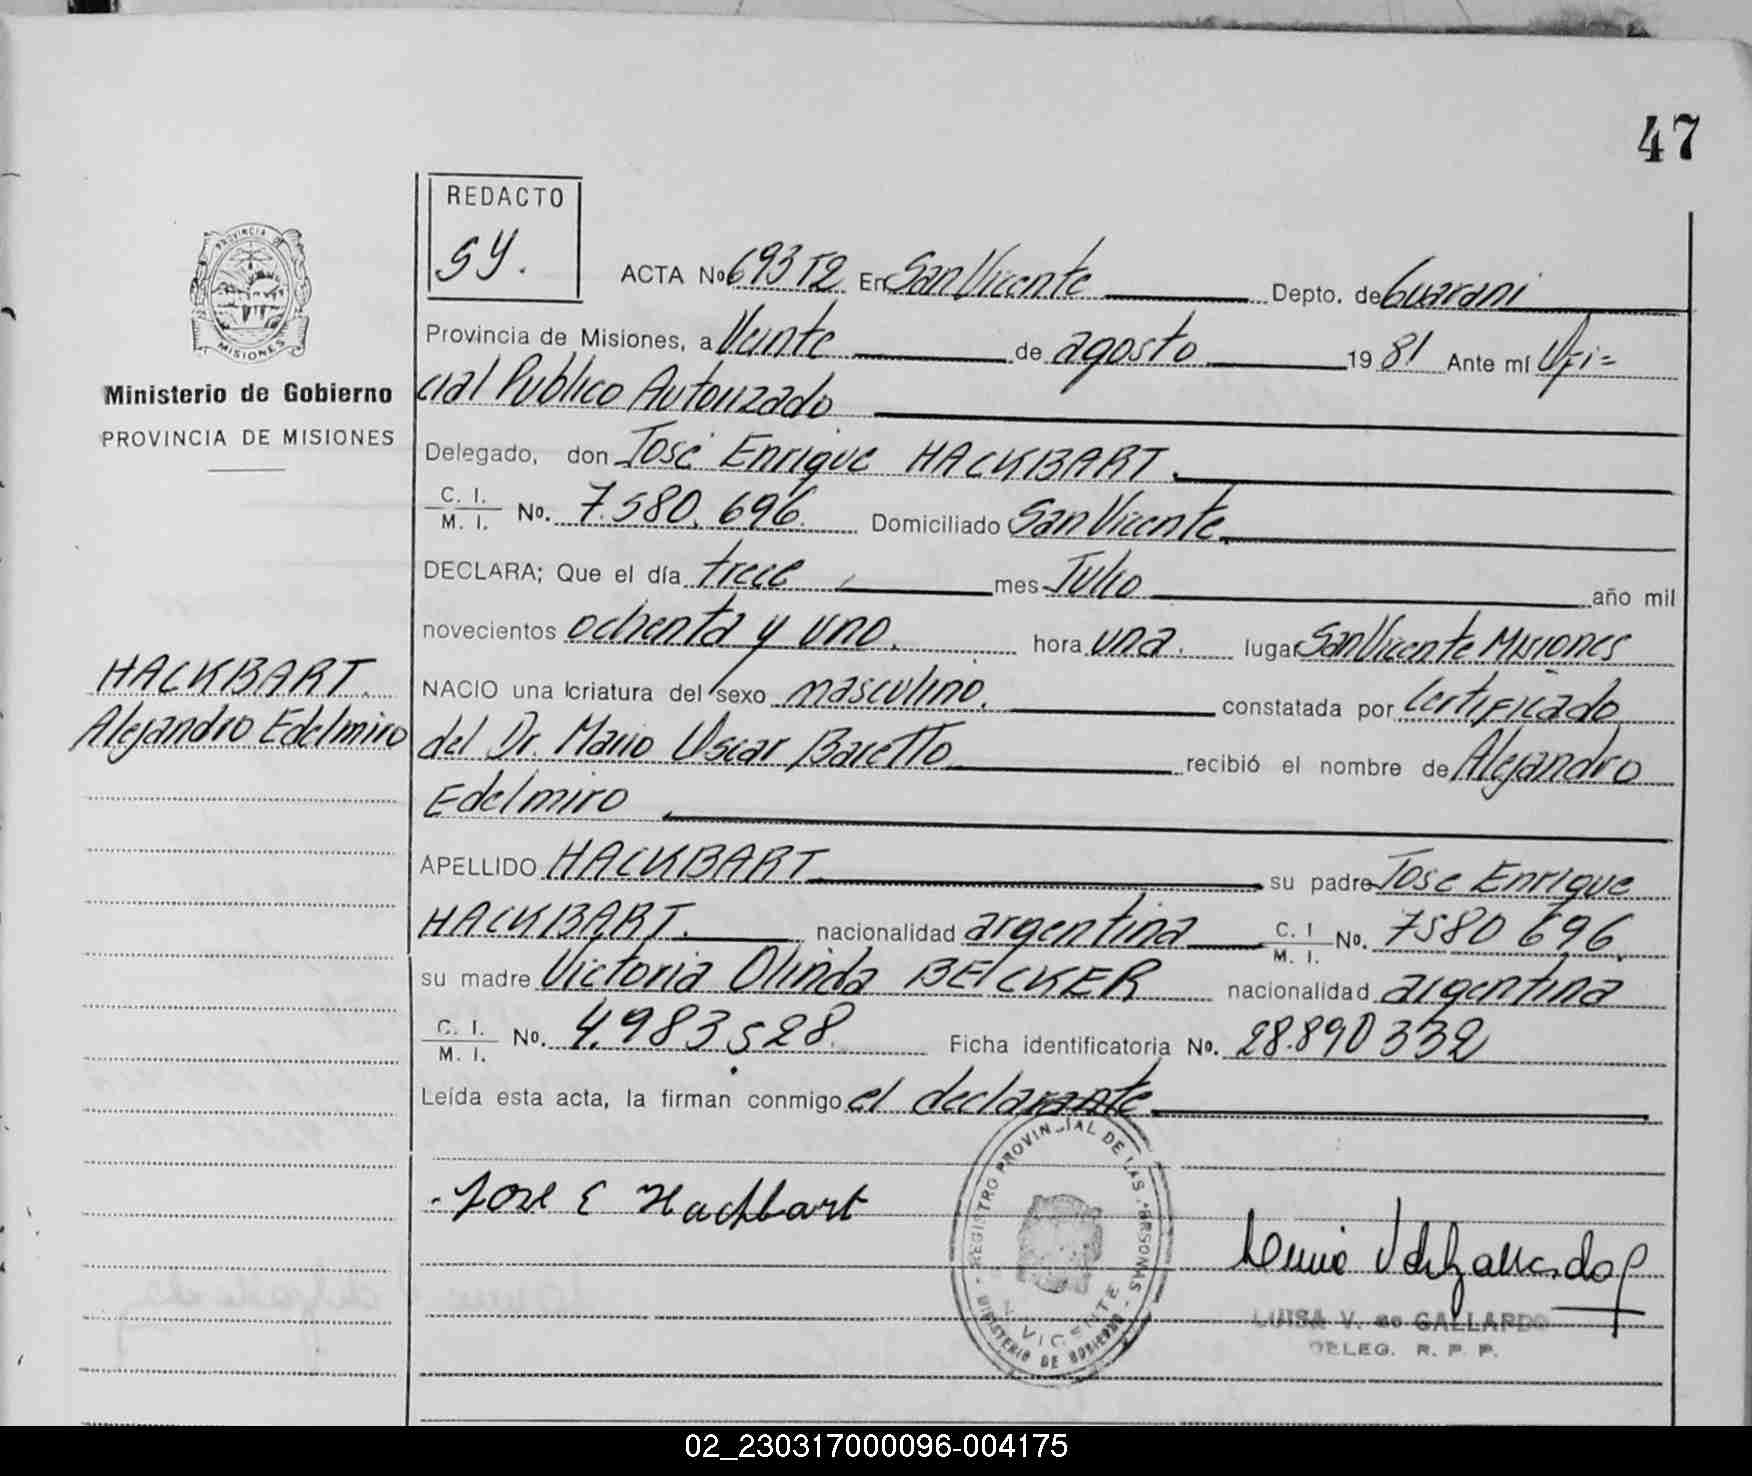 47
REDACTO
SY.
PROVINCIA DE
MISIONES
Ministerio de Gobierno
PROVINCIA DE MISIONES
ACTA No 693T2 En San Vicente Depto. de Guarani
Provincia de Misiones, a Veinte de agosto 1981 Ante mí Ofi=
cial Publico Autorizado
Delegado, don José Enrique HACKBART.
C. I. / M. I. No. 7.580.696. Domiciliado San Vicente
DECLARA; Que el día trece mes Julio año mil
novecientos ochenta y uno. hora una. lugar San Vicente Misiones
HACKBART.
Alejandro Edelmiro
NACIO una criatura del sexo masculino. constatada por Certificado
del Dr. Mario Oscar Baretto recibió el nombre de Alejandro
Edelmiro
APELLIDO HACKBART su padre Jose Enrique
HACKBART. nacionalidad argentina C. I / M. I. No. 7580 696.
su madre Victoria Olinda BEICKER nacionalidad argentina
C. I. / M. I. No. 4.983.528. Ficha identificatoria No. 28.890 332
Leída esta acta, la firman conmigo el declarante
Jose E Hackbart
REGISTRO PROVINCIAL DE LAS PERSONAS
MINISTERIO DE GOBIERNO
VICENTE
LUISA V. de GALLARDO
DELEG. R. P. P.
02_230317000096-004175